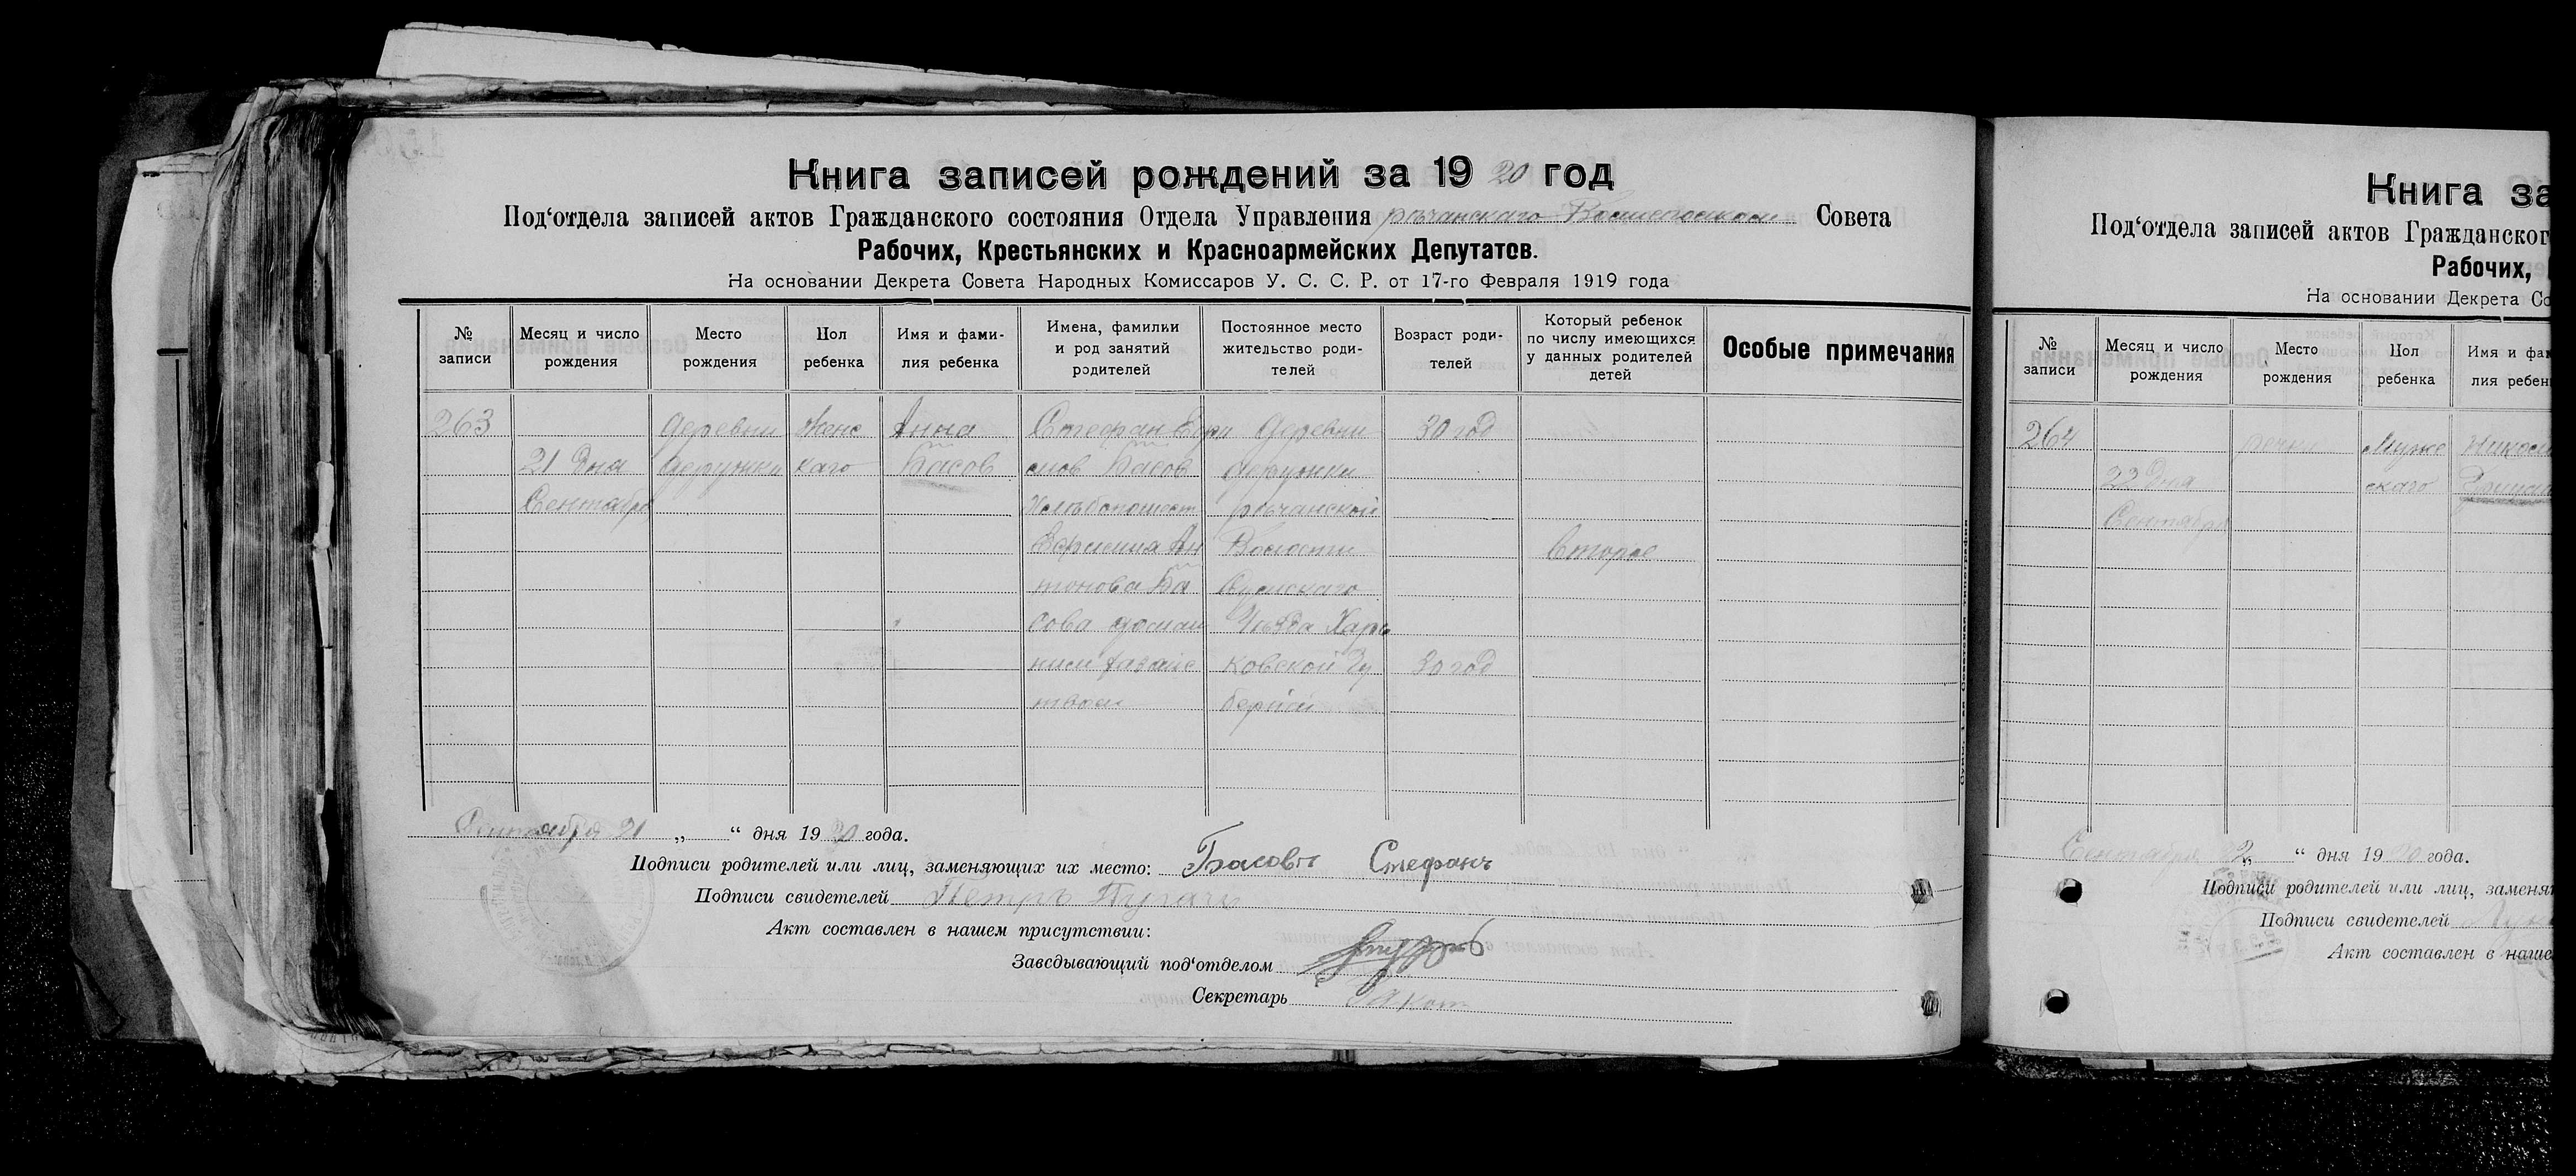 Книга записей рождений за 1920 год
Под‘отдела записей актов Гражданского состояния Отдела Управления речанскаго Совета
Рабочих, Крестьянских и Красноармейских Депутатов.
На основании Декрета Совета Народных Комиссаров У. С. С. Р. от 17-го Февраля 1919 года
№ записи
Месяц и число рождения
Место рождения
Пол ребенка
Имя и фами- лия ребенка
Имена, фамилии и род занятий родителей
Постоянное место жительство роди- телей
Возраст роди- телей
Который ребенок по числу имеющихся у данных родителей детей
Особые примечания
263
21 дня
Сентября
деревни
Женс
каго
Анна
Басов
Стефан Ефи
мов Басов
Ефимия Ан
тонова Ба
сова
деревни
речанской
Волости
Сумскаго
Уезда Харь
ковской Гу
бернии
30 год
30 год
Второе
Сентября 21 „ “ дня 1920 года.
Подписи родителей или лиц, заменяющих их место: Басовъ Стефанъ
Подписи свидетелей Петръ Пугачъ
Акт составлен в нашем присутствии:
Заведывающий под‘отделом
Секретарь
Книга за
Под‘отдела записей актов Гражданског
Рабочих,
На основании Декрета Со
№ записи
Месяц и число рождения
Место рождения
Пол ребенка
Имя и фам
лия ребен
264
22 дня
Сентября
речки
Муже
скаго
Сентября 22 „ “ дня 1920 года.
Подписи родителей или лиц, заменя
Подписи свидетелей
Акт составлен в наше